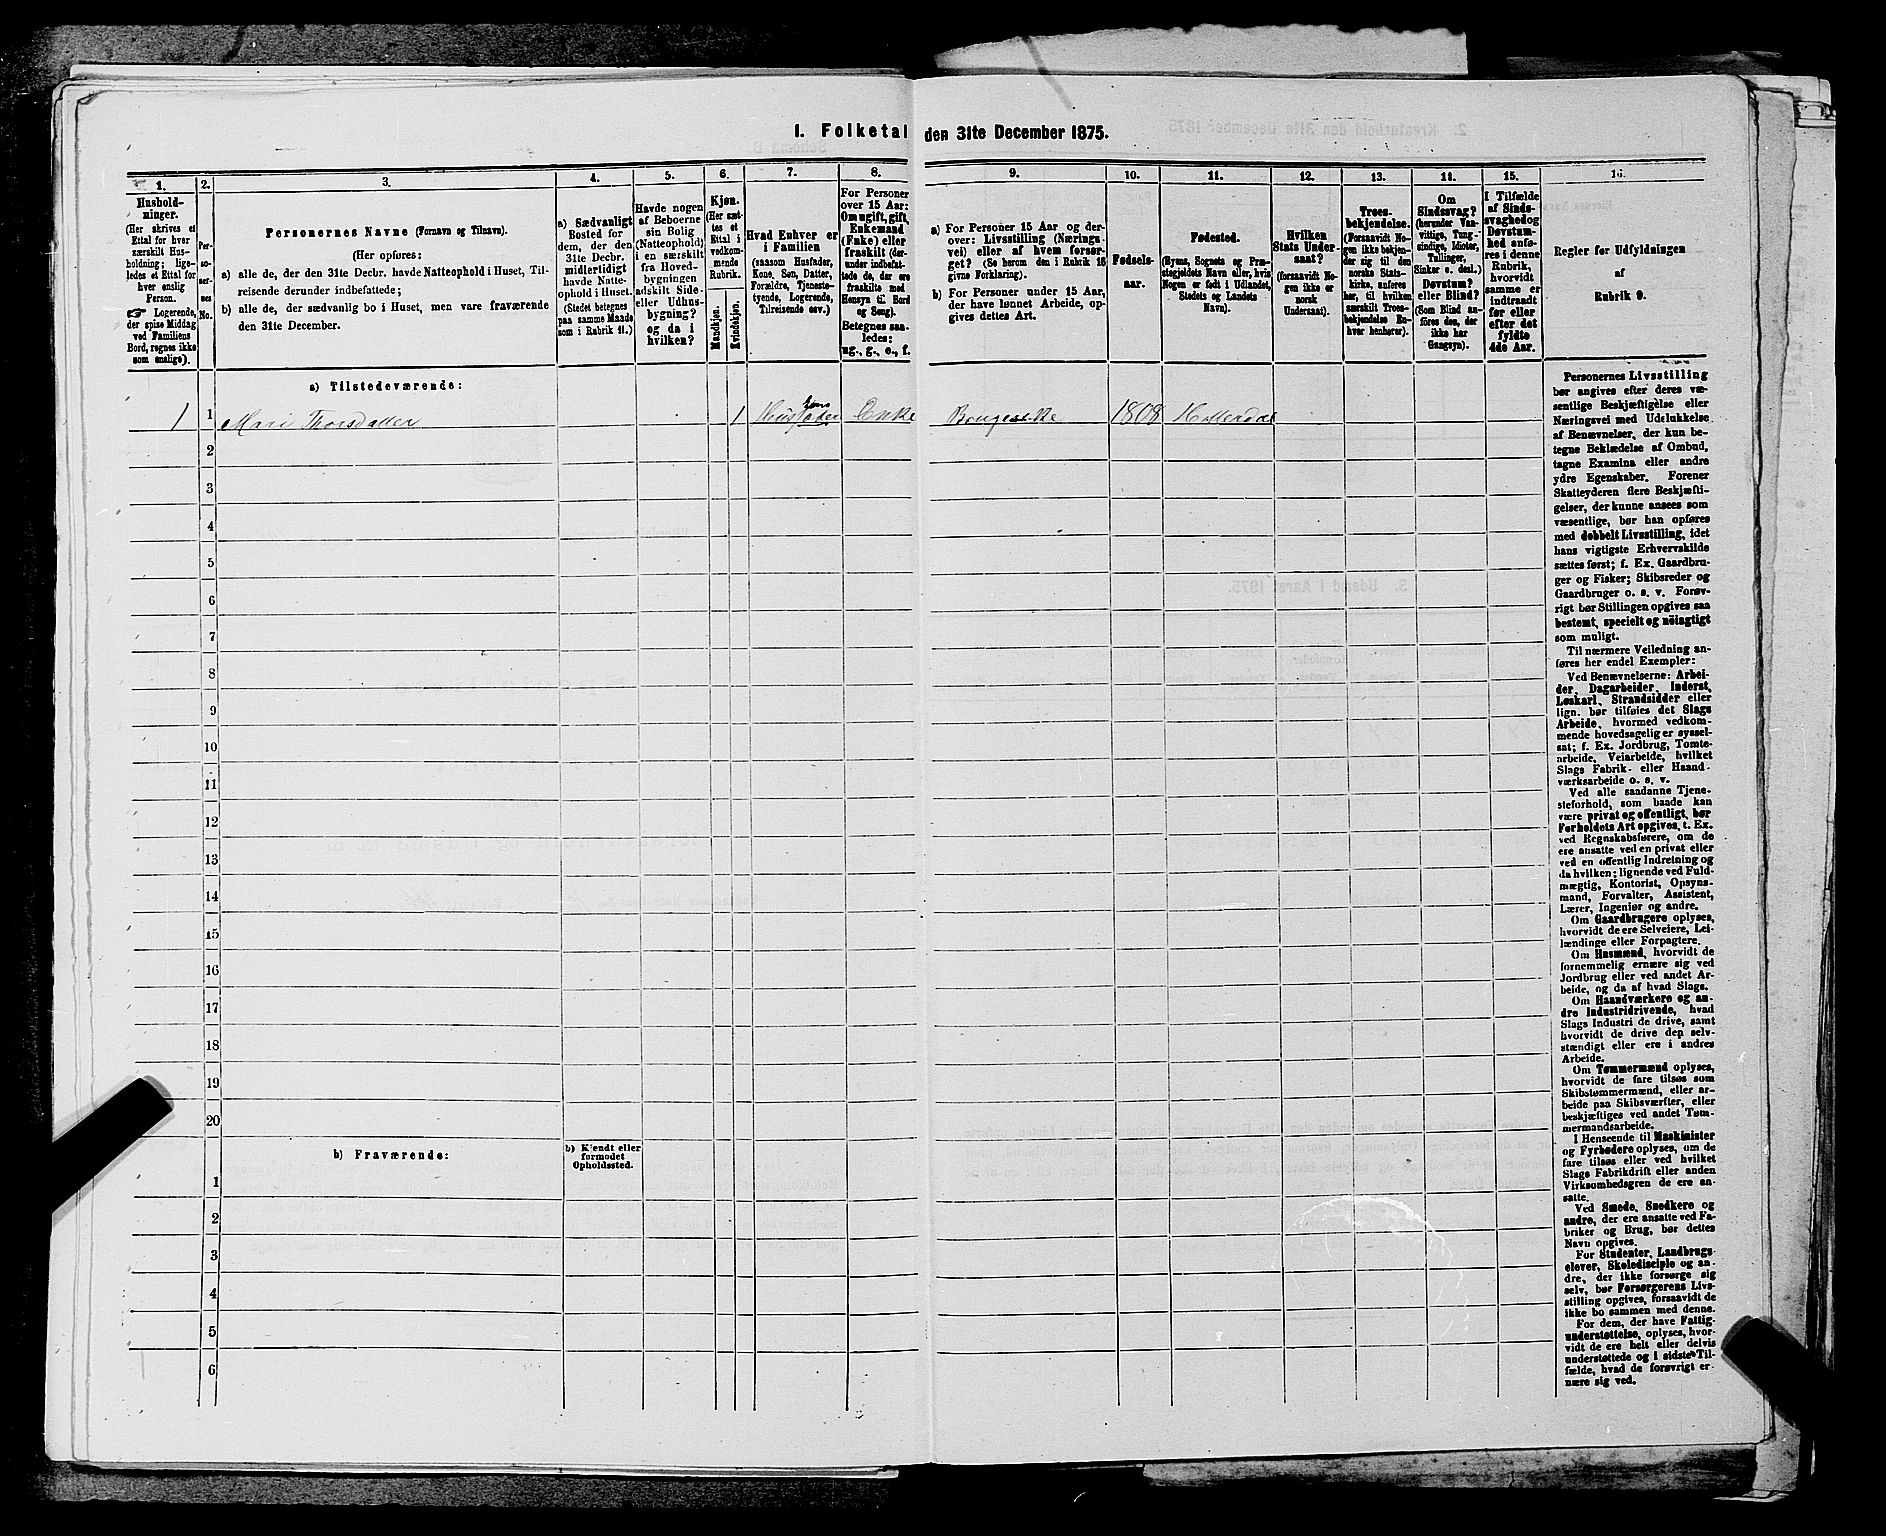 1. Folketal den 31te December 1875.
1.
2.
3.
4.
5.
6.
7.
8.
9.
10.
11.
12.
13.
14.
15.
16.
Hushold-
ninger.
(Her skrives et
Ettal for hver
særskilt Hus-
holdning; lige-
ledes et Ettal for
hver enslig
Person.
☞ Logerende,
der spise Middag
ved Familiens
Bord, regnes ikke
som enslige).
Per-
so-
ner-
nes
No.
Personernes Navne (Fornavn og Tilnavn).
(Her opføres:
a) alle de, der den 31te Decbr. havde Natteophold i Huset, Til-
reisende derunder indbefattede;
b) alle de, der sædvanlig bo i Huset, men vare fraværende
den 31te December.
a) Sædvanligt
Bosted for
dem, der den
31te Decbr.
midlertidigt
havde Natte-
ophold i Huset.
(Stedet betegnes
paa samme Maade
som i Rubrik 11.)
Havde nogen
af Beboerne
sin Bolig
(Natteophold)
i en særskilt
fra Hoved-
bygningen
adskilt Side-
eller Udhus-
bygning?
og da i
hvilken?
Kjøn.
(Her sæt-
tes et
Ettal i
vedkom-
mende
Rubrik.
Mandkjøn.
Kvindekjøn.
Hvad Enhver er
i Familien
(saasom Husfader,
Kone, Søn, Datter,
Forældre, Tjeneste-
tyende, Logerende,
Tilreisende osv.)
For Personer
over 15 Aar:
Om ugift, gift,
Enkemand
(Enke) eller
fraskilt (der-
under indbefat-
tede de, der ere
fraskilte med
Hensyn til Bord
og Seng).
Betegnes saa-
ledes:
ug., g., e., f.
a) For Personer 15 Aar og der-
over: Livsstilling (Nærings-
vei) eller af hvem forsør-
get? (Se herom den i Rubrik 16
givne Forklaring).
b) For Personer under 15 Aar,
der have lønnet Arbeide, op-
gives dettes Art.
Fødsels-
aar.
Fødested.
(Byens, Sognets og Præ-
stegjeldets Navn eller, hvis
Nogen er født i Udlandet,
Stedets og Landets
Navn).
Hvilken
Stats Under-
saat?
(forsaavidt No-
gen ikke er
norsk
Undersaat).
Troes-
bekjendelse.
(Forsaavidt No-
gen ikke bekjen-
der sig til den
norske Stats-
kirke, anføres
her, til hvilken
særskilt Troes-
bekjendelse En-
hver henhører).
Om
Sindssvag?
(herunder Van-
vittige, Tung-
sindige, Idioter,
Tullinger,
Sinker o. desl.)
Døvstum?
eller Blind?
(Som Blind an-
føres den, der
ikke har
Gangsyn).
I Tilfælde
af Sinds-
svaghed og
Døvstum-
hed anfø-
res i denne
Rubrik,
hvorvidt
samme er
indtraadt
før eller
efter det
fyldte
4de Aar.
Regler før Udfyldningen
af
Rubrik 9.
a) Tilstedeværende:
1 1 Mari Thorsdatter 1 Husfader Enke 1808 Hitterdal
2
3
4
5
6
7
8
9
10
11
12
13
14
15
16
17
18
19
20
b) Fraværende:
b) Kjendt eller
formodet
Opholdssted.
1
2
3
4
5
6
Personernes Livsstilling
bør angives efter deres væ-
sentlige Beskjæftigelse eller
Næringsvei med Udelukkelse
af Benævnelser, der kun be-
tegne Beklædelse af Ombud,
tagne Examina eller andre
ydre Egenskaber. Forener
Skatteyderen flere Beskjæfti-
gelser, der kunne ansees som
væsentlige, bør han opføres
med dobbelt Livsstilling, idet
hans vigtigste Erhvervskilde
sættes først; f. Ex. Gaardbru-
ger og Fisker; Skibsreder og
Gaardbruger o. s. v. Forøv-
rigt bør Stillingen opgives saa
bestemt, specielt og nöiagtigt
som muligt.
Til nærmere Veiledning an-
føres her endel Exempler:
Ved Benævnelserne: Arbei-
der, Dagarbeider, Inderst,
Løskarl, Strandsidder eller
lign. bør tilføies det Slags
Arbeide, hvormed vedkom-
mende hovedsagelig er syssel-
sat; f. Ex. Jordbrug, Tomte-
arbeide, Veiarbeide, hvilket
Slags Fabrik- eller Haand-
værksarbeide o. s. v.
Ved alle saadanne Tjene-
steforhold, som baade kan
være privat og offentligt, bør
Forholdets Art opgives, t. Ex.
ved Regnskabsførere, om de
ere ansatte ved en privat eller
ved en offentlig Indretning og
da hvilken; lignende ved Fuld-
mægtig, Kontorist, Opsyns-
mand, Forvalter, Assistent,
Lærer, Ingeniør og andre.
Om Gaardbrugere oplyses,
hvorvidt de ere Selveiere, Lei-
lændinge eller Forpagtere.
Om Husmænd, hvorvidt de
fornemmelig ernære sig ved
Jordbrug eller ved andet Ar-
beide, og da af hvad Slags.
Om Haandværkere og an-
dre Industridrivende, hvad
Slags Industri de drive, samt
hvorvidt de drive den selv-
stændigt eller ere i andres
Arbeide.
Om Tømmermænd oplyses,
hvorvidt de fare tilsøs som
Skibstømmermænd, eller ar-
beide paa Skibsværfter, eller
beskjæftiges ved andet Tøm-
mermandsarbeide.
I Henseende til Maskinister
og Fyrbødere oplyses, om de
fare tilsøs eller ved hvilket
Slags Fabrikdrift eller anden
Virksomhedsgren de ere an-
satte.
Ved Smede, Snedkere og
andre, der ere ansatte ved Fa-
briker og Brug, bør dettes
Navn opgives.
For Studenter, Landbrugs-
elever, Skoledisciple og an-
dre, der ikke forsørge sig
selv, bør Forsørgerens Livs-
stilling opgives, forsaavidt de
ikke bo sammen med denne.
For dem, der have Fattig-
understøttelse, oplyses, hvor-
vidt de ere helt eller delvis
understøttede og i sidste Til-
fælde, hvad de forøvrigt er-
nære sig ved.